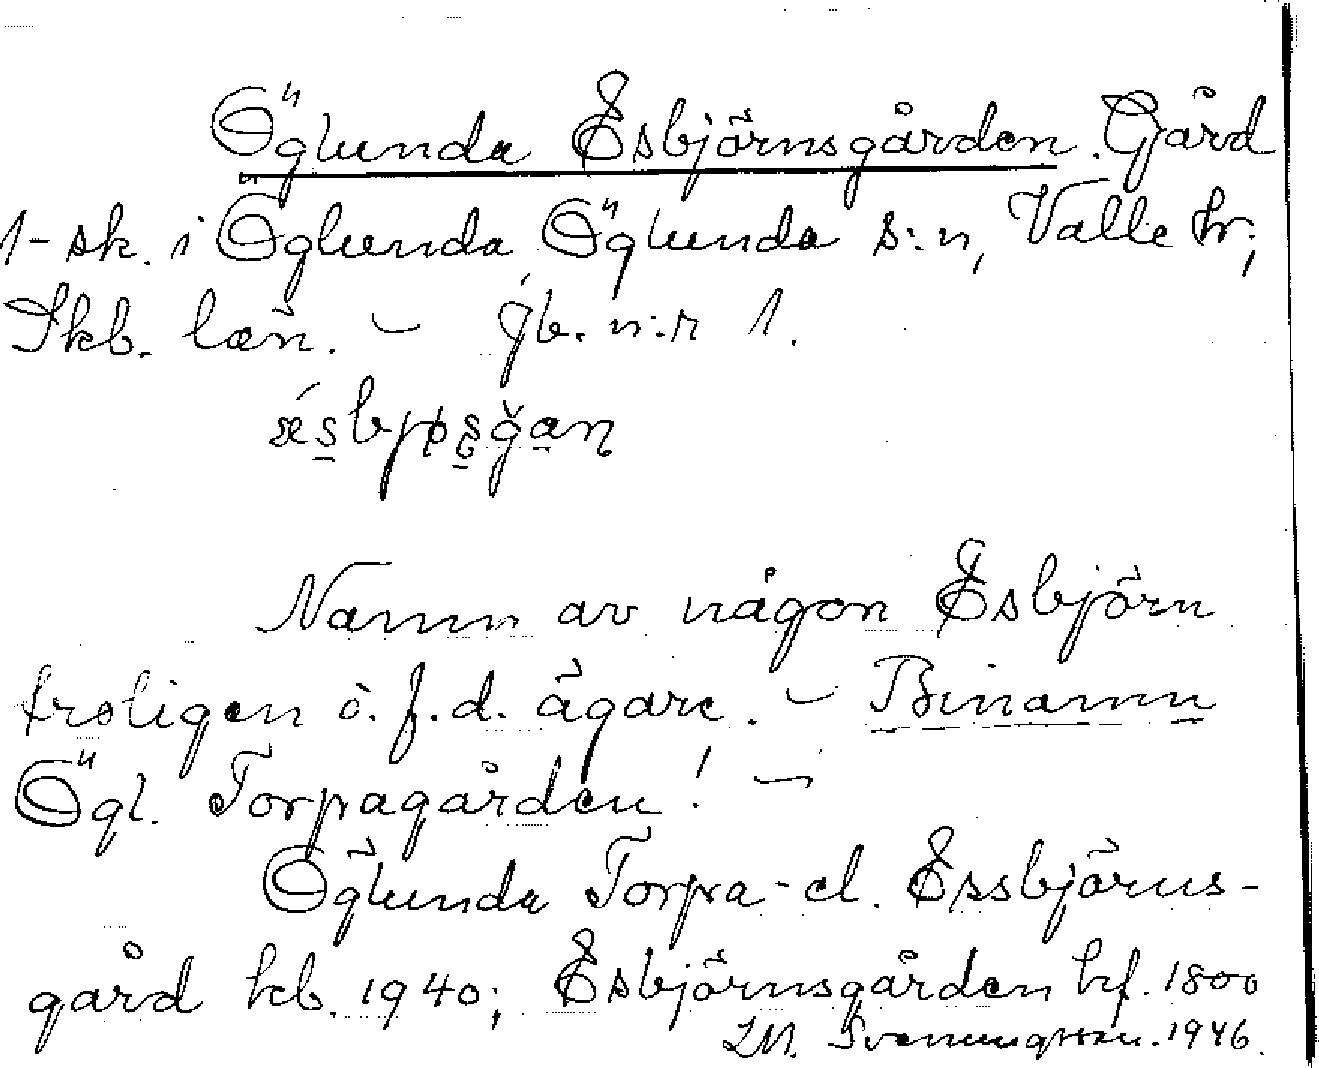 Öglunda Esbjörnsgården. Gård
1-sk. i Öglunda Öglunda s:n, Valle hr;
Skb. län. - jb. n:r 1.
Namn av någon Esbjörn
troligen o. f.d. ägare. - Binamn
Ögl. Torpagården! -
Öglunda Torpa- el. Essbjörns-
gård kb. 1940; Esbjörnsgården hf. 1800
1946.